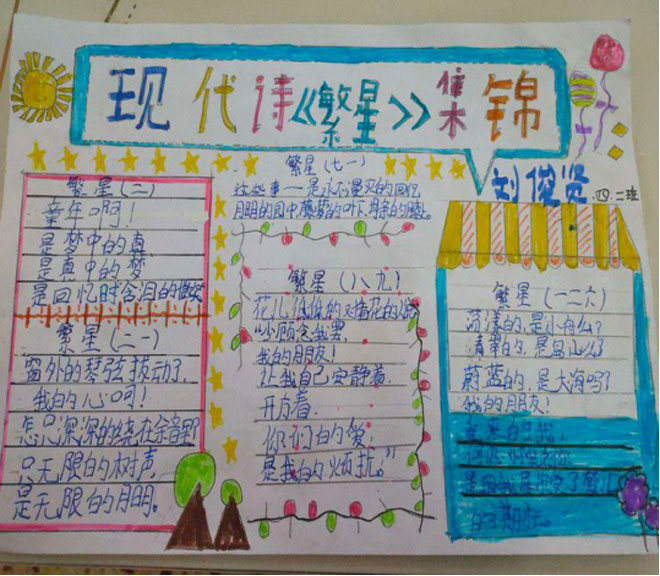 现代诗《繁星》集锦
刘俊贤 四.二班
繁星(二)
童年啊!
是梦中的真
是真中的梦
是回忆时含泪的微笑
繁星(二一)
窗外的琴弦拨动了,
我的心呵!
怎只深深的绕在余音里
只无限的树声
是无限的月明。
繁星(七一)
这些事—是永不漫灭的回忆
月明的园中,藤萝的叶下,母亲的膝上。
繁星(八九)
花儿低低的对惜花的人
少顾念我罢,
我的朋友!
让我自己安静着
开放着
你们的爱
是我的烦扰。”
繁星(一二六)
荡漾的,是小舟么?
青翠的,是岛山么?
蔚蓝的,是大海吗?
我的朋友!
我
的